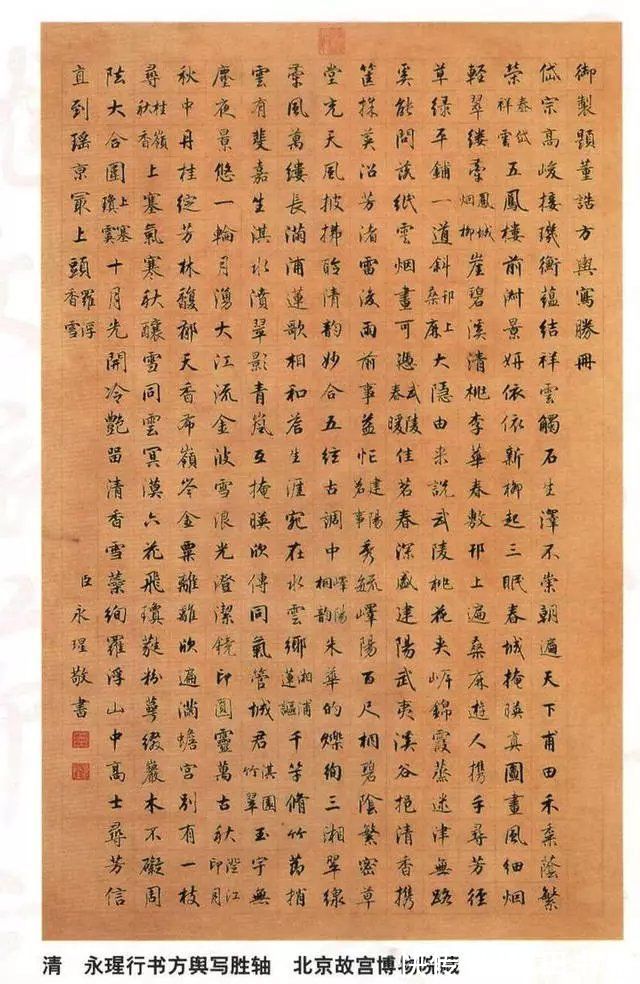 御製題董誥方輿寫勝冊
岱宗高峻接璣衡蘊結祥雲觸石生澤不崇朝遍天下甫田禾黍蔭繁
榮泰岱祥雲五鳳樓前淑景妍依依新柳起三眠春城掩暎真圖畫風細烟
輕翠縷牽鳳城烟柳崖碧溪清桃李華春敷邗上遍桑麻遊人攜手尋芳徑
草綠平鋪一道斜邗上桑麻大隱由來說武陵桃花夾岸錦霞蒸迷津無路
奚能問談紙雲烟畫可憑武陵春暖佳茗春深盛建陽武夷溪谷挹清香攜
筐採莫沿芳渚雷後雨前事益忙建陽茗事秀毓嶧陽百尺桐碧陰繁密草
堂充天風披拂聆清韵妙合五絃古調中嶧陽桐韵朱華的爍絢三湘翠線
牽風萬縷長滿浦蓮歌相和答生涯宛在水雲鄉湘浦蓮謳千竿脩竹捎
雲有斐嘉生淇水濆翠影青嵐互掩暎欣傳同氣管城君淇園竹翠玉宇無
塵夜景悠一輪月湧大江流金波雪浪光澄潔鏡印圓靈萬古秋澄江印月
秋中丹桂綻芳林馥郁天香布嶺岑金粟離離欣遍滿蟾宮別有一枝
尋桂嶺秋香上塞氣寒秋釀雪同雲冥漠六花飛瓊敲粉萼綴巖木不礙周
陸大合圍上塞瓊十月先開冷艷留清香雪蕊絢羅浮山中高士尋芳信
直到瑤京最上頭羅浮香雪
臣永瑆敬書
清 永瑆行书方舆写胜轴 北京故宫博物院